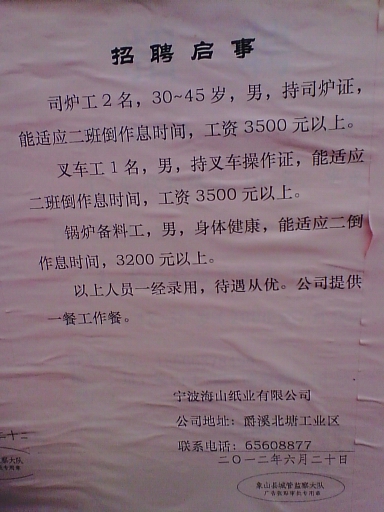 招聘启事
司炉工2名，30~45岁，男，持司炉证，
能适应二班倒作息时间，工资3500元以上。
叉车工1名，男，持叉车操作证，能适应
二班倒作息时间，工资3500元以上。
锅炉备料工，男，身体健康，能适应二倒
作息时间，3200元以上。
以上人员一经录用，待遇从优。公司提供
一餐工作餐。
宁波海山纸业有限公司
公司地址：爵溪北塘工业区
联系电话：65608877
二〇一二年六月二十日
象山县城管监察大队